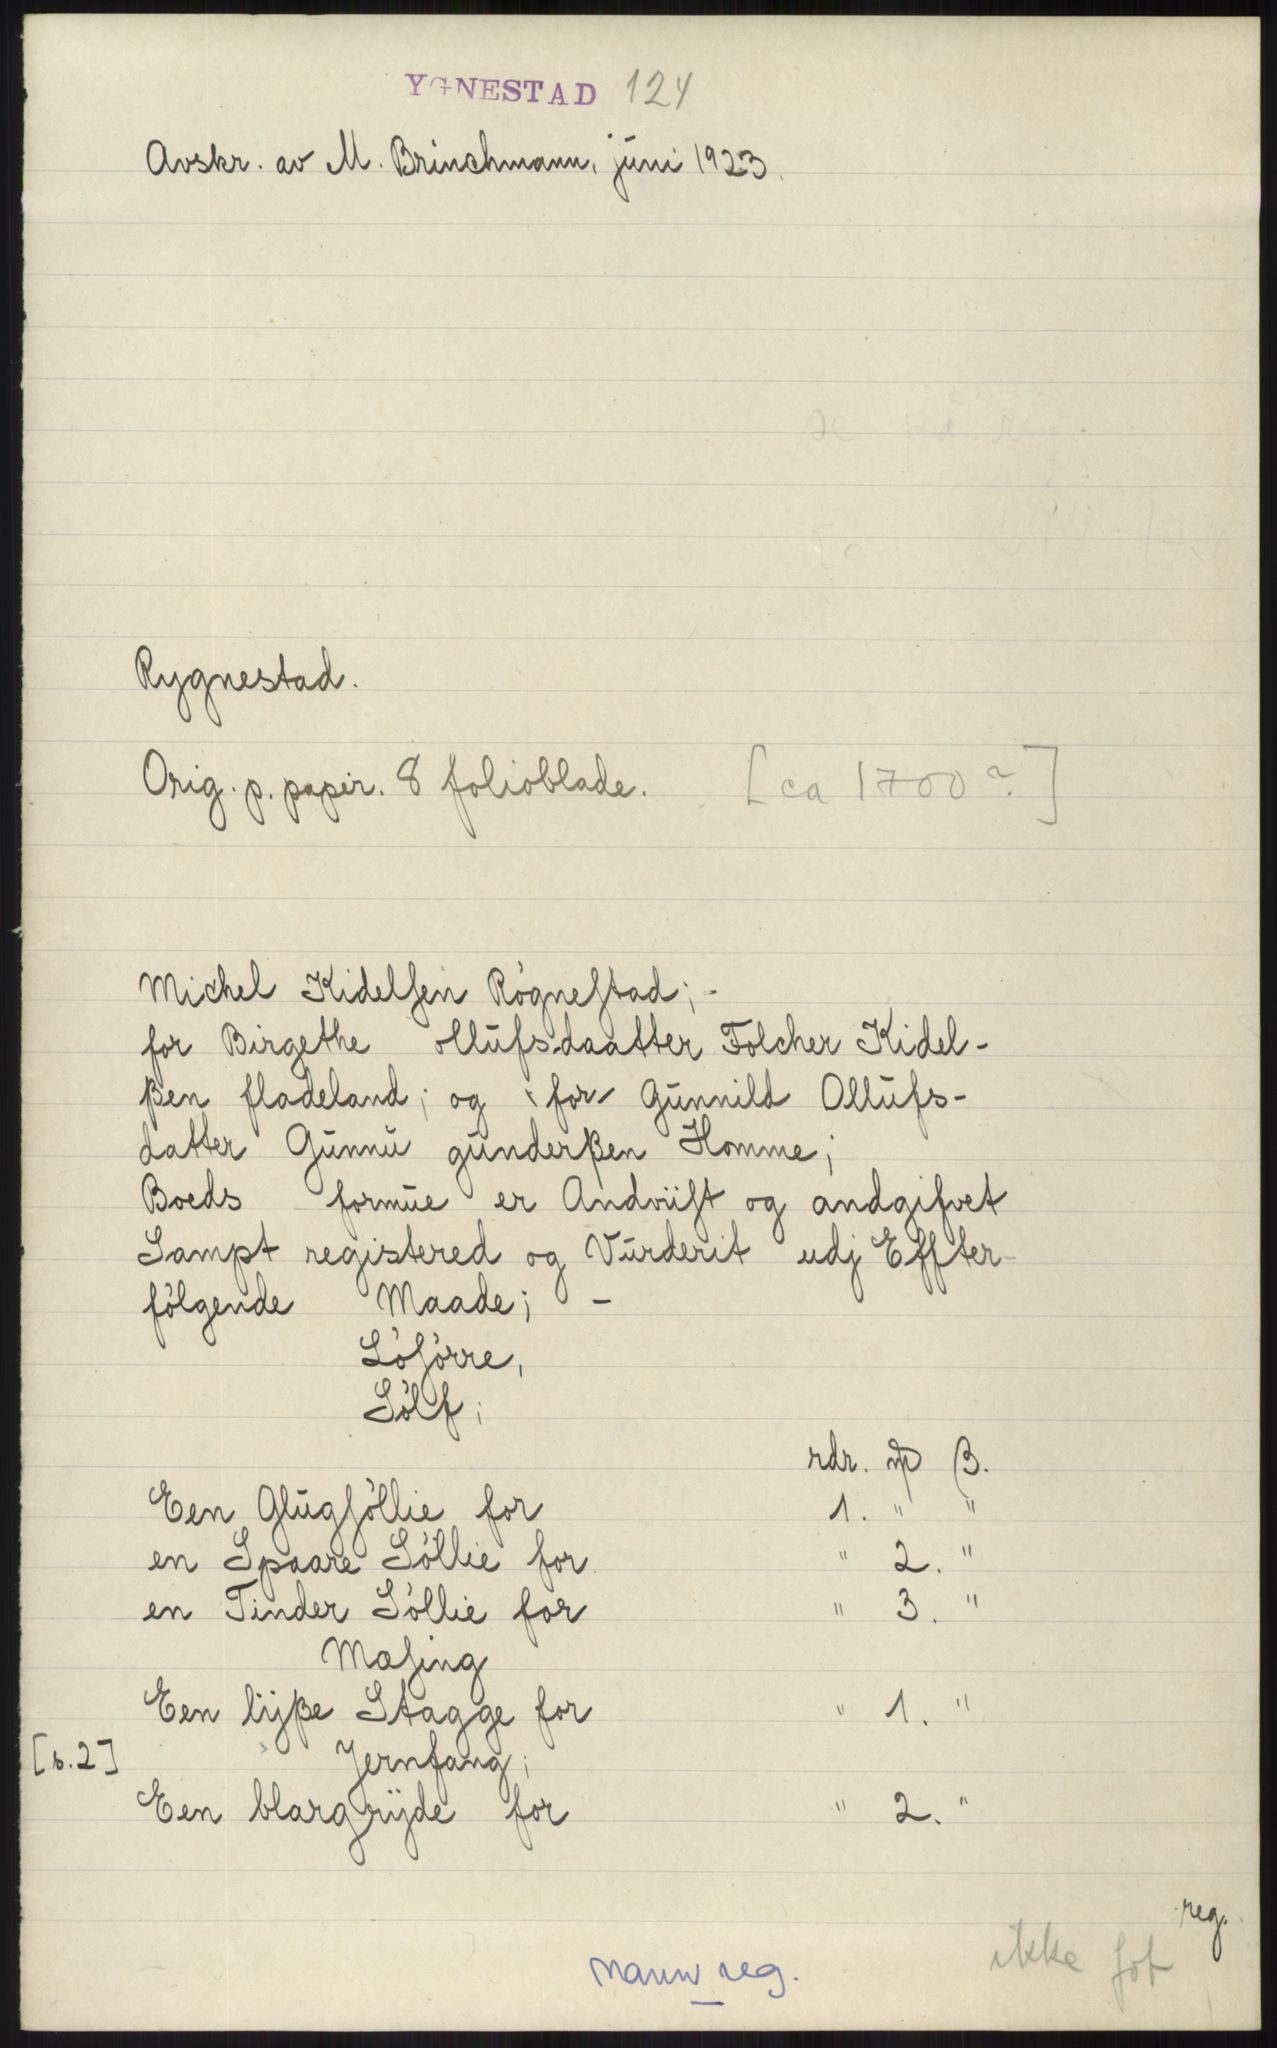 YGNESTAD 124
Avskr. av M. Brinchmann, juni 1923.
Rygnestad.
Orig. p. papir. 8 folioblade. [ca 1700?]
Michel Kidelsen Røgnestad; -
for Birgethe ollufsdaatter Folcher Kidel-
ßen fladeland; og for Gunnild Ollufs-
datter Gunnu gunderßen Homme;
Boeds formue er Andviist og andgifvet
Sampt registered og Vurderit udj Effter
følgende Maade; -
Løsørre,
Sølf;
rdr. mþ β.
Een Glugsøllie for 1. " "
en Spaare Søllie for " 2. "
en Tinder Søllie for " 3. "
Mæsing
Een lijße Stagge for " 1. "
[s. 2] Jernfang;
Een blargrijde for " 2. "
reg.
ikke fot
navnreg.